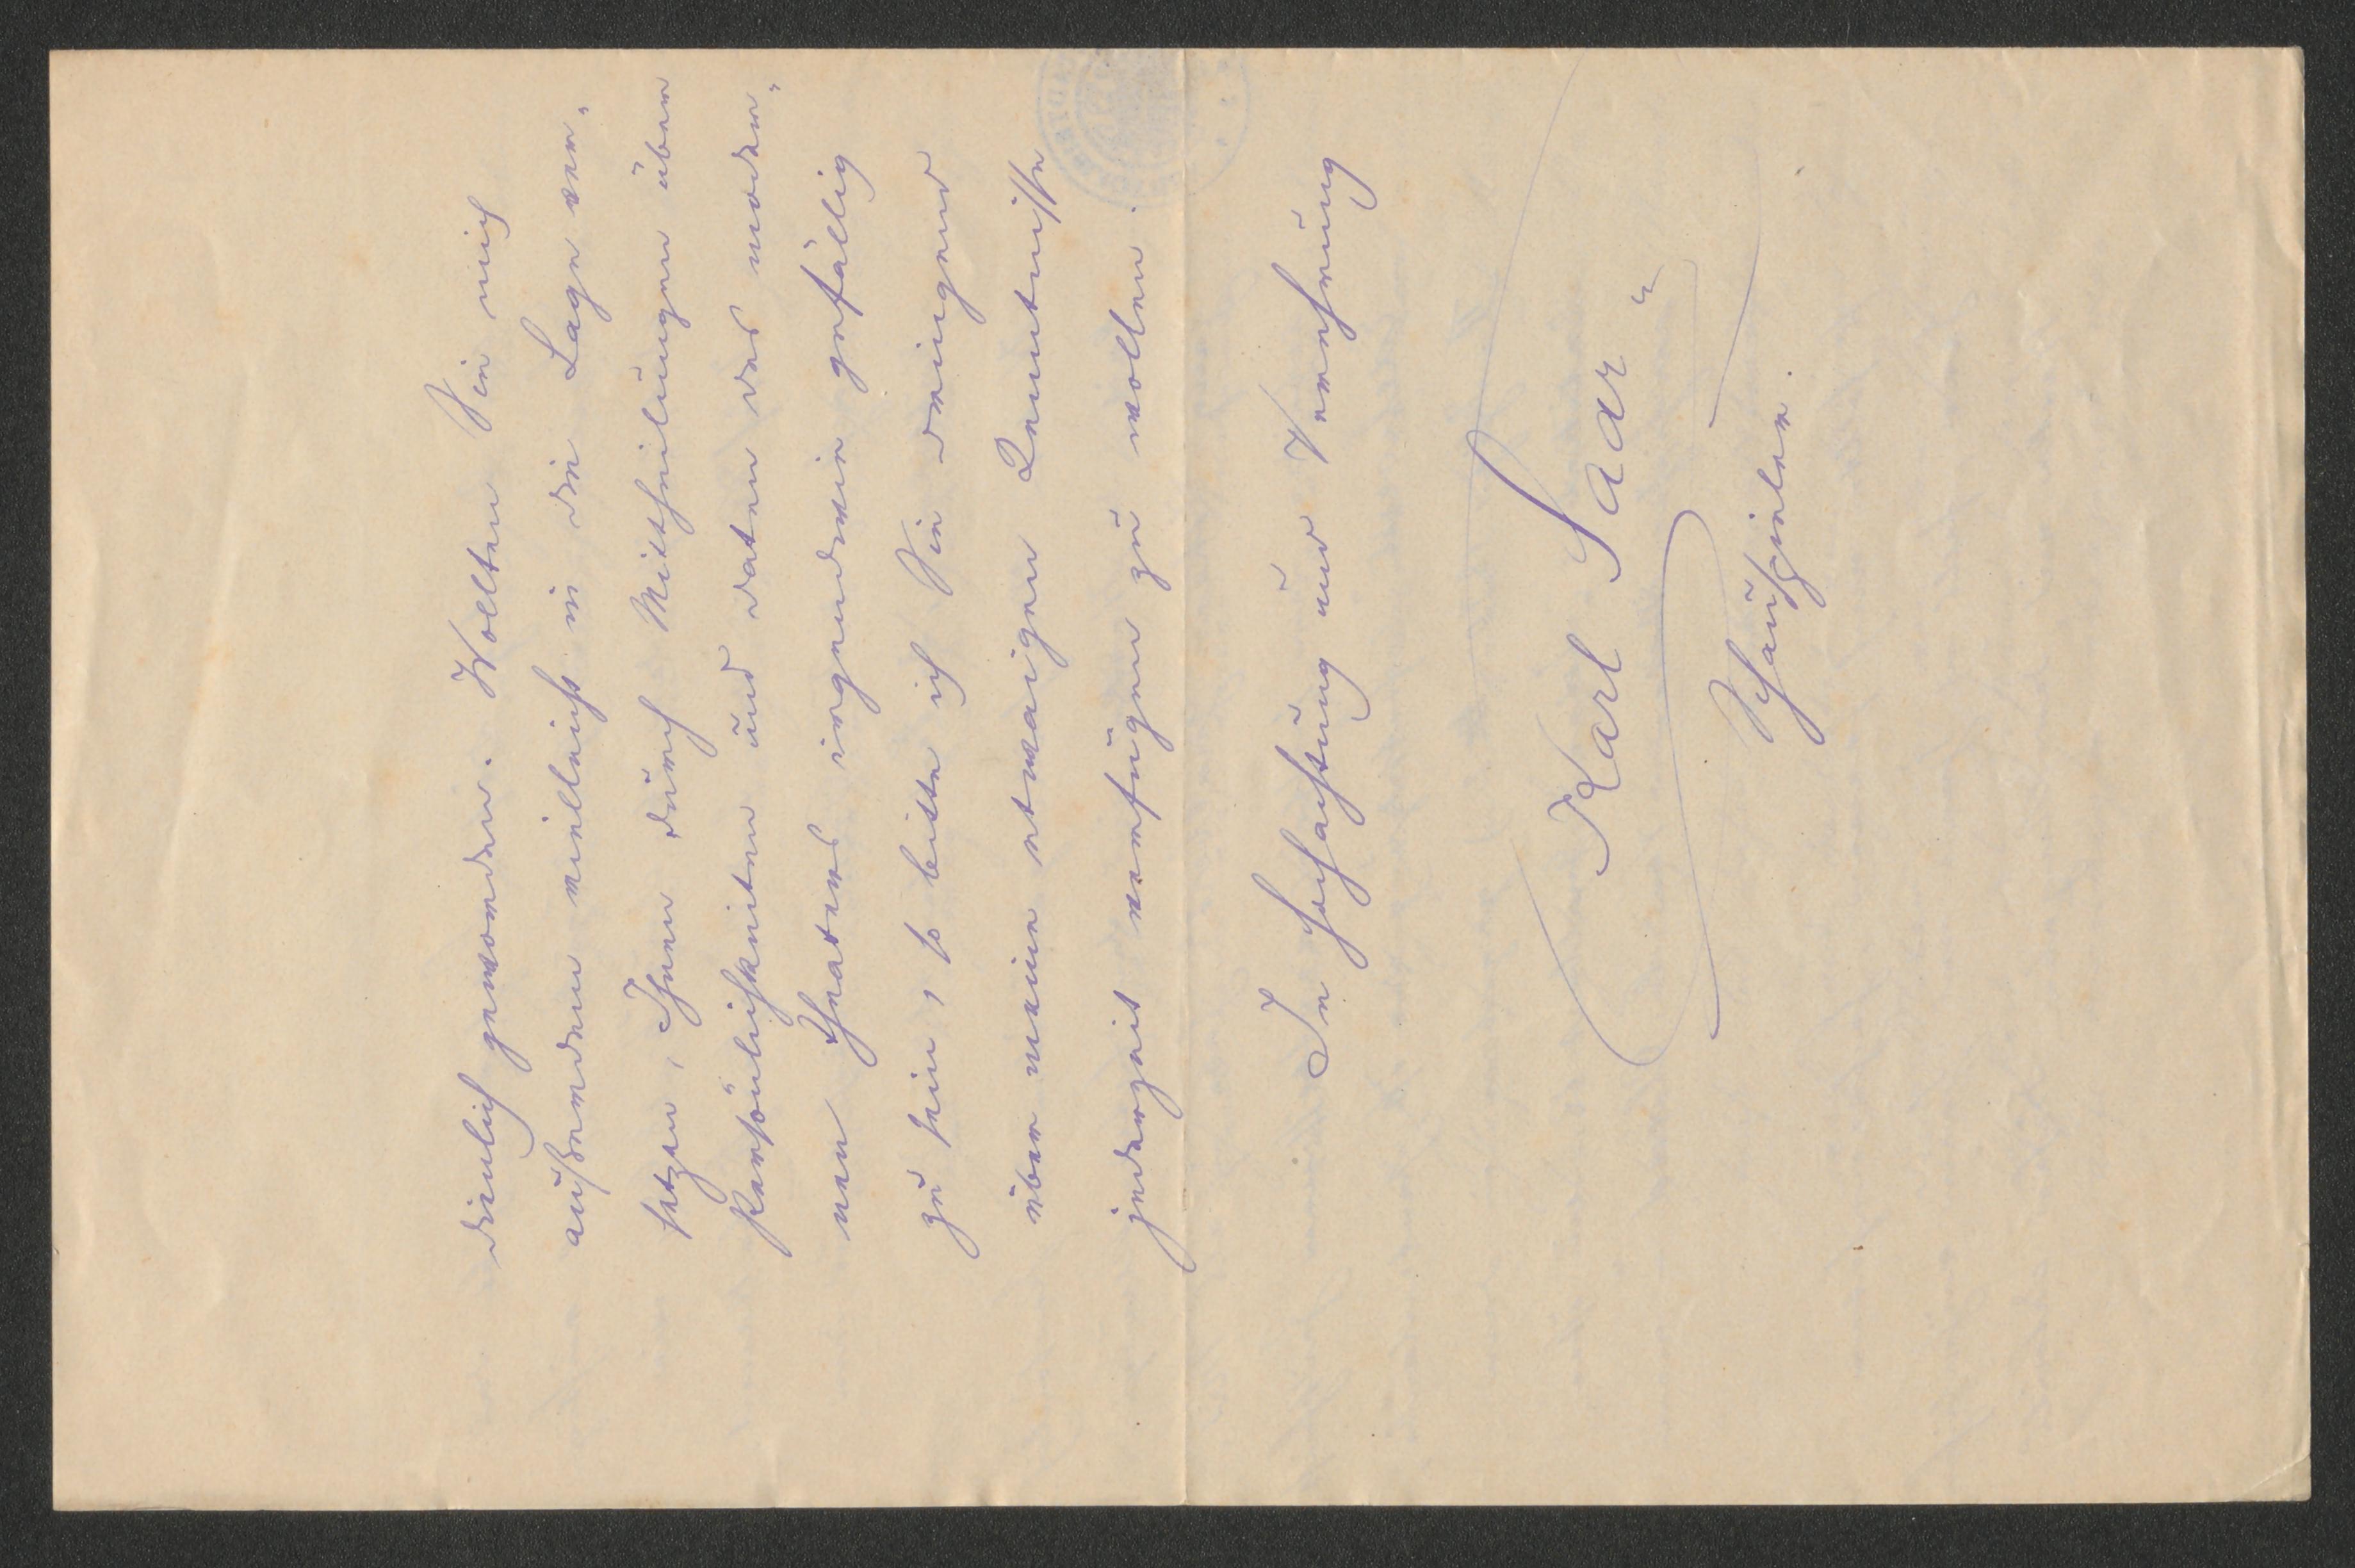 dienlich geworden. Wollten Sie mich
außerdem vielleicht in die Lage ver-
setzen, Ihnen durch Mittheilungen über
Persönlichkeiten und daten des moder-
nen Theaters irgendwie gefällig
zu sein, so bitte ich Sie dringend
über meine etwaigen Kentnisse
jederzeit verfügen zu wollen.
In Hochachtung und Verehrung
Karl Saar
Schauspieler.